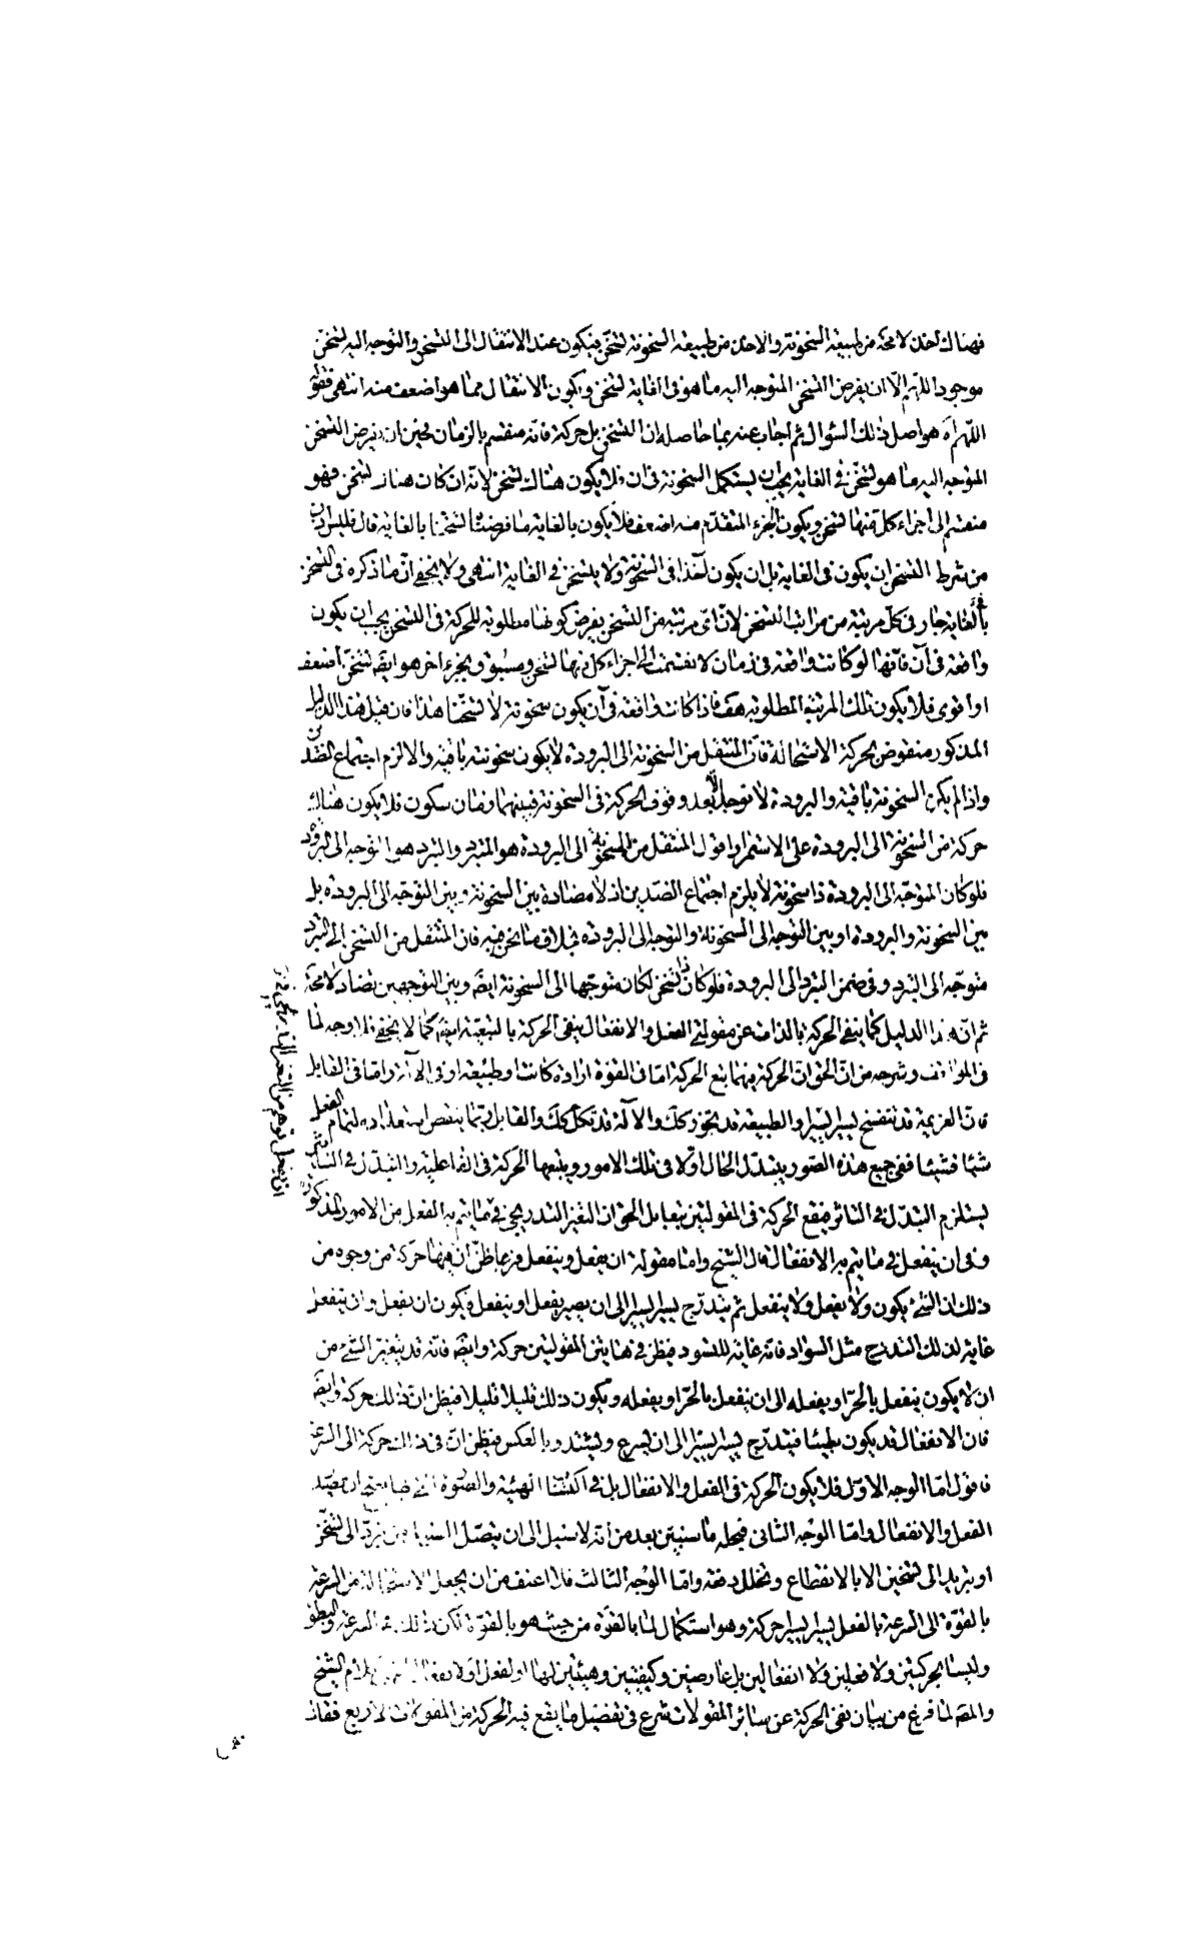 فهناك اخذ لا محة من طبيعة السخونة والاخذ من طبيعة السخونة تسخن فيكون عند الانتقال الى التسخن والتوجه اليه تسخن
موجود اللهم الا ان يفرض التسخن المتوجه اليه ما هو فى الغاية تسخن ويكون الانتقال مما هو اضعف منه انتهى فقوله
اللهم اه هو اصل ذلك السؤال ثم اجاب عنه بما حاصله ان التسخن بل حركة فانه منقسم بالزمان فحين ان يفرض التسخن
المتوجه اليه ما هو تسخن فى الغاية يجب ان يستكمل السخونة فى ان فلا يكون هناك تسخن لانه ان كان هناك تسخن فهو
منقسم الى اجزاء كل منها تسخن ويكون الجزء المتقدم منه اضعف فلا يكون بالغاية ما فرضنا تسخنا بالغاية قال فليس اذن
من شرط التسخن ان يكون فى الغاية بل ان يكون اخذا فى السخونة ولا يتسخن فى الغاية انتهى ولا يخفى ان ما ذكره فى التسخن
بالغاية جار فى كل مرتبة من مراتب التسخن لان اى مرتبة من التسخن يفرض كونها مطلوبة للحركة فى التسخن يجب ان يكون
واقعة فى آن فانها لو كانت واقعة فى زمان لانقسمت الى اجزاء كل منها تسخن ومسبوق بجزء اخر هو ايضا تسخن اضعف
او اقوى فلا يكون تلك المرتبة المطلوبة هف فاذا كانت واقعة فى آن يكون سخونة لا تسخنا هذا فان قيل هذا الدليل
المذكور منقوض بحركة الاستحالة فان المنتقل من السخونة الى البرودة لا يكون سخونته باقية والا لزم اجتماع الضدين
واذا لم يكن السخونة باقية والبرودة لا توجد الا بعد وقوف الحركة فى السخونة فبينهما زمان سكون فلا يكون هناك
حركة من السخونة الى البرودة على الاستمرار اقول المنتقل من السخونة الى البرودة هو المتبرد والتبرد هو التوجه الى البرودة
فلو كان المتوجه الى البرودة ذا سخونة لا يلزم اجتماع الضدين اذ لا مضادة بين السخونة وبين التوجه الى البرودة بل
بين السخونة والبرودة او بين التوجه الى السخونة والتوجه الى البرودة بخلاف ما نحن فيه فان المنتقل من التسخن الى التبرد
متوجه الى التبرد وفى ضمن التبرد الى البرودة فلو كان ذا تسخن لكان متوجها الى السخونة ايضا وبين التوجهين تضاد لا محة
ثم ان هذا الدليل كما ينفى الحركة بالذات عن مقولتى الفعل والانفعال ينفى الحركة بالتبعية ايضا كما لا يخفى فلا وجه لما
فى المواقف وشرحه من ان الحق ان الحركة فيهما تتبع الحركة اما فى القوة ارادة كانت او طبيعة او فى الآلة واما فى القابل
فان العزيمة قد تنفسخ يسيرا يسيرا والطبيعة قد تخور كك والآلة قد تكل كك والقابل ربما ينقص استعداده لتمام الفعل
شيئا فشيئا ففى جميع هذه الصور يتبدل الحال اولا فى تلك الامور ويتبعها الحركة فى الفاعلية والتبدل فى التاثير
يستلزم التبدل فى التاثر فيقع الحركة فى المقولتين تبعا بل الحق ان التغير التدريجى فى ما يتم به الفعل من الامور المذكورة
وفى ان ينفعل فى ما يتم به الانفعال قال الشيخ واما مقولة ان يفعل وينفعل فربما ظن ان فيها حركة من وجوه من
ذلك ان الشئ يكون ولا يفعل ولا ينفعل ثم يتدرج يسيرا يسيرا الى ان يصير يفعل او ينفعل فيكون ان يفعل وان ينفعل
غاية لذلك التدرج مثل السواد فانه غاية للتسود فيظن فى هاتين المقولتين حركة وايضا فانه قد يتغير الشئ من
ان لا يكون ينفعل بالحر او يفعله الى ان ينفعل بالحر او يفعله ويكون ذلك قليلا قليلا فيظن ان ذلك حركة وايضا
فان الانفعال قد يكون بطيئا فيتدرج يسيرا يسيرا الى ان يسرع ويشتد وبالعكس فيظن ان فى ذلك حركة الى السرعة
فاقول اما الوجه الاول فلا يكون الحركة فى الفعل والانفعال بل فى اكتساب الهيئة والصورة التى بها
الفعل والانفعال واما الوجه الثانى فيحله ما سنبين بعد من انه لا سبيل الى ان يتصل من تبرد الى تسخن
او تبريد الى تسخين الا بالانقطاع وتخلل وقفة واما الوجه الثالث فلا اعنف من ان يجعل الاستحالة من السرعة
بالقوة الى السرعة بالفعل يسيرا يسيرا حركة وهو استكمال لما بالقوة من حيث هو بالقوة لكن ذلك فى السرعة والبطؤ
وليسا بحركتين ولا فعلين ولا انفعالين بل عارضين وكيفيتين وهيئتين لهما كلام الشيخ
والمصه لما فرغ من بيان نفى الحركة عن سائر المقولات شرع فى تفصيل ما يقع فيه الحركة من المقولات الاربع فقال